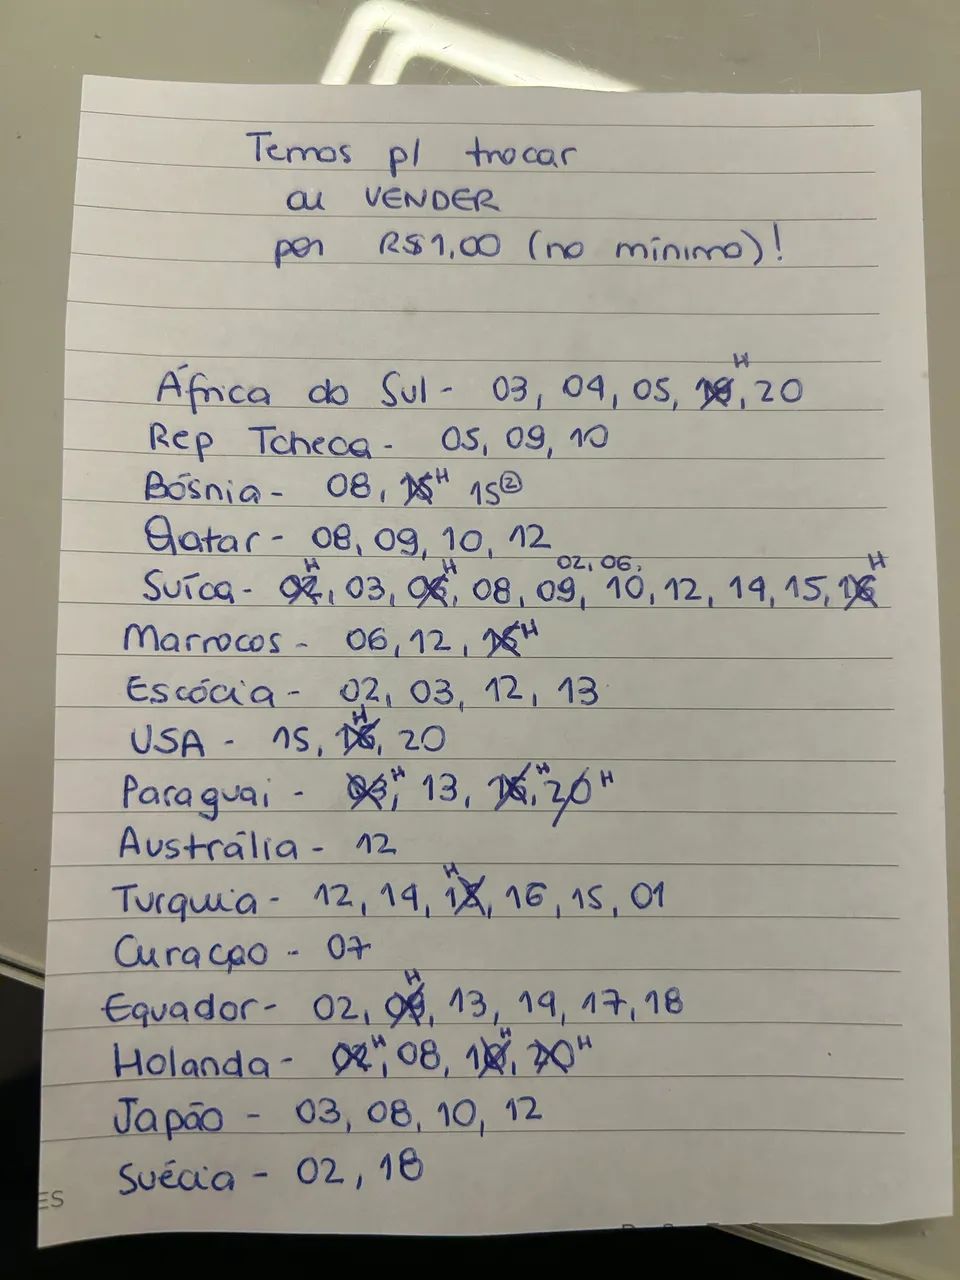 Temos p/ trocar
ou VENDER
por R$1,00 (no mínimo)!
África do Sul - 03, 04, 05, 18 H, 20
Rep Tcheca - 05, 09, 10
Bósnia - 08, 15 H 15 ②
Qatar - 08, 09, 10, 12
02, 06,
Suíca - 02 H, 03, 06 H, 08, 09, 10, 12, 14, 15, 16 H
Marrocos - 06, 12, 16 H
Escócia - 02, 03, 12, 13
USA - 15, 16 H, 20
Paraguai - 03 H, 13, 16 H, 20 H
Austrália - 12
Turquia - 12, 14, 18 H, 16, 15, 01
Curaçao - 07
Equador - 02, 09 H, 13, 14, 17, 18
Holanda - 02 H, 08, 18 H, 20 H
Japão - 03, 08, 10, 12
Suécia - 02, 18
ES